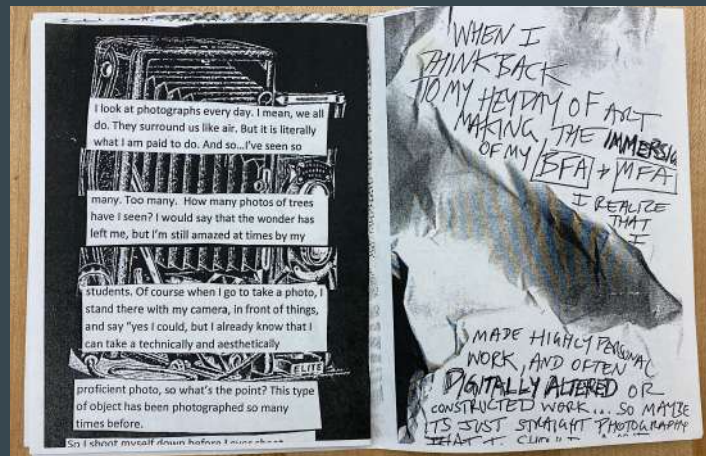 I look at photographs every day. I mean, we all
do. They surround us like air. But it is literally
what I am paid to do. And so...I've seen so
many. Too many. How many photos of trees
have I seen? I would say that the wonder has
left me, but I'm still amazed at times by my
students. Of course when I go to take a photo, I
stand there with my camera, in front of things,
and say "yes I could, but I already know that I
can take a technically and aesthetically
ELITE
proficient photo, so what's the point? This type
of object has been photographed so many
times before.
So I shoot myself down before I ever shoot
WHEN I
THINK BACK
TO MY HEYDAY OF ART
MAKING, THE IMMERSIO
OF MY BFA + MFA
I REALIZE
THAT
I
MADE HIGHLY PERSONAL
WORK, AND OFTEN
DIGITALLY ALTERED OR
CONSTRUCTED WORK... SO MAYBE
ITS JUST STRAIGHT PHOTOGRAPHY
THAT I